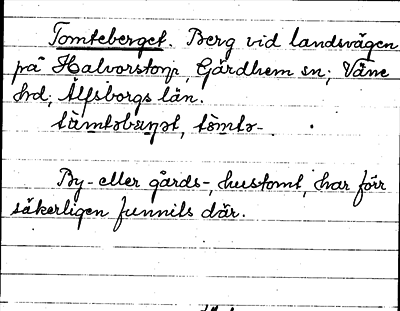 Tomteberget. Berg vid landsvägen
på Halvorstorp, Gärdhem sn; Väne
hd; Älfsborgs län.
tòmtəbærjət, tòmtə-.
By- eller gårds-, hustomt, har förr
säkerligen funnits där.